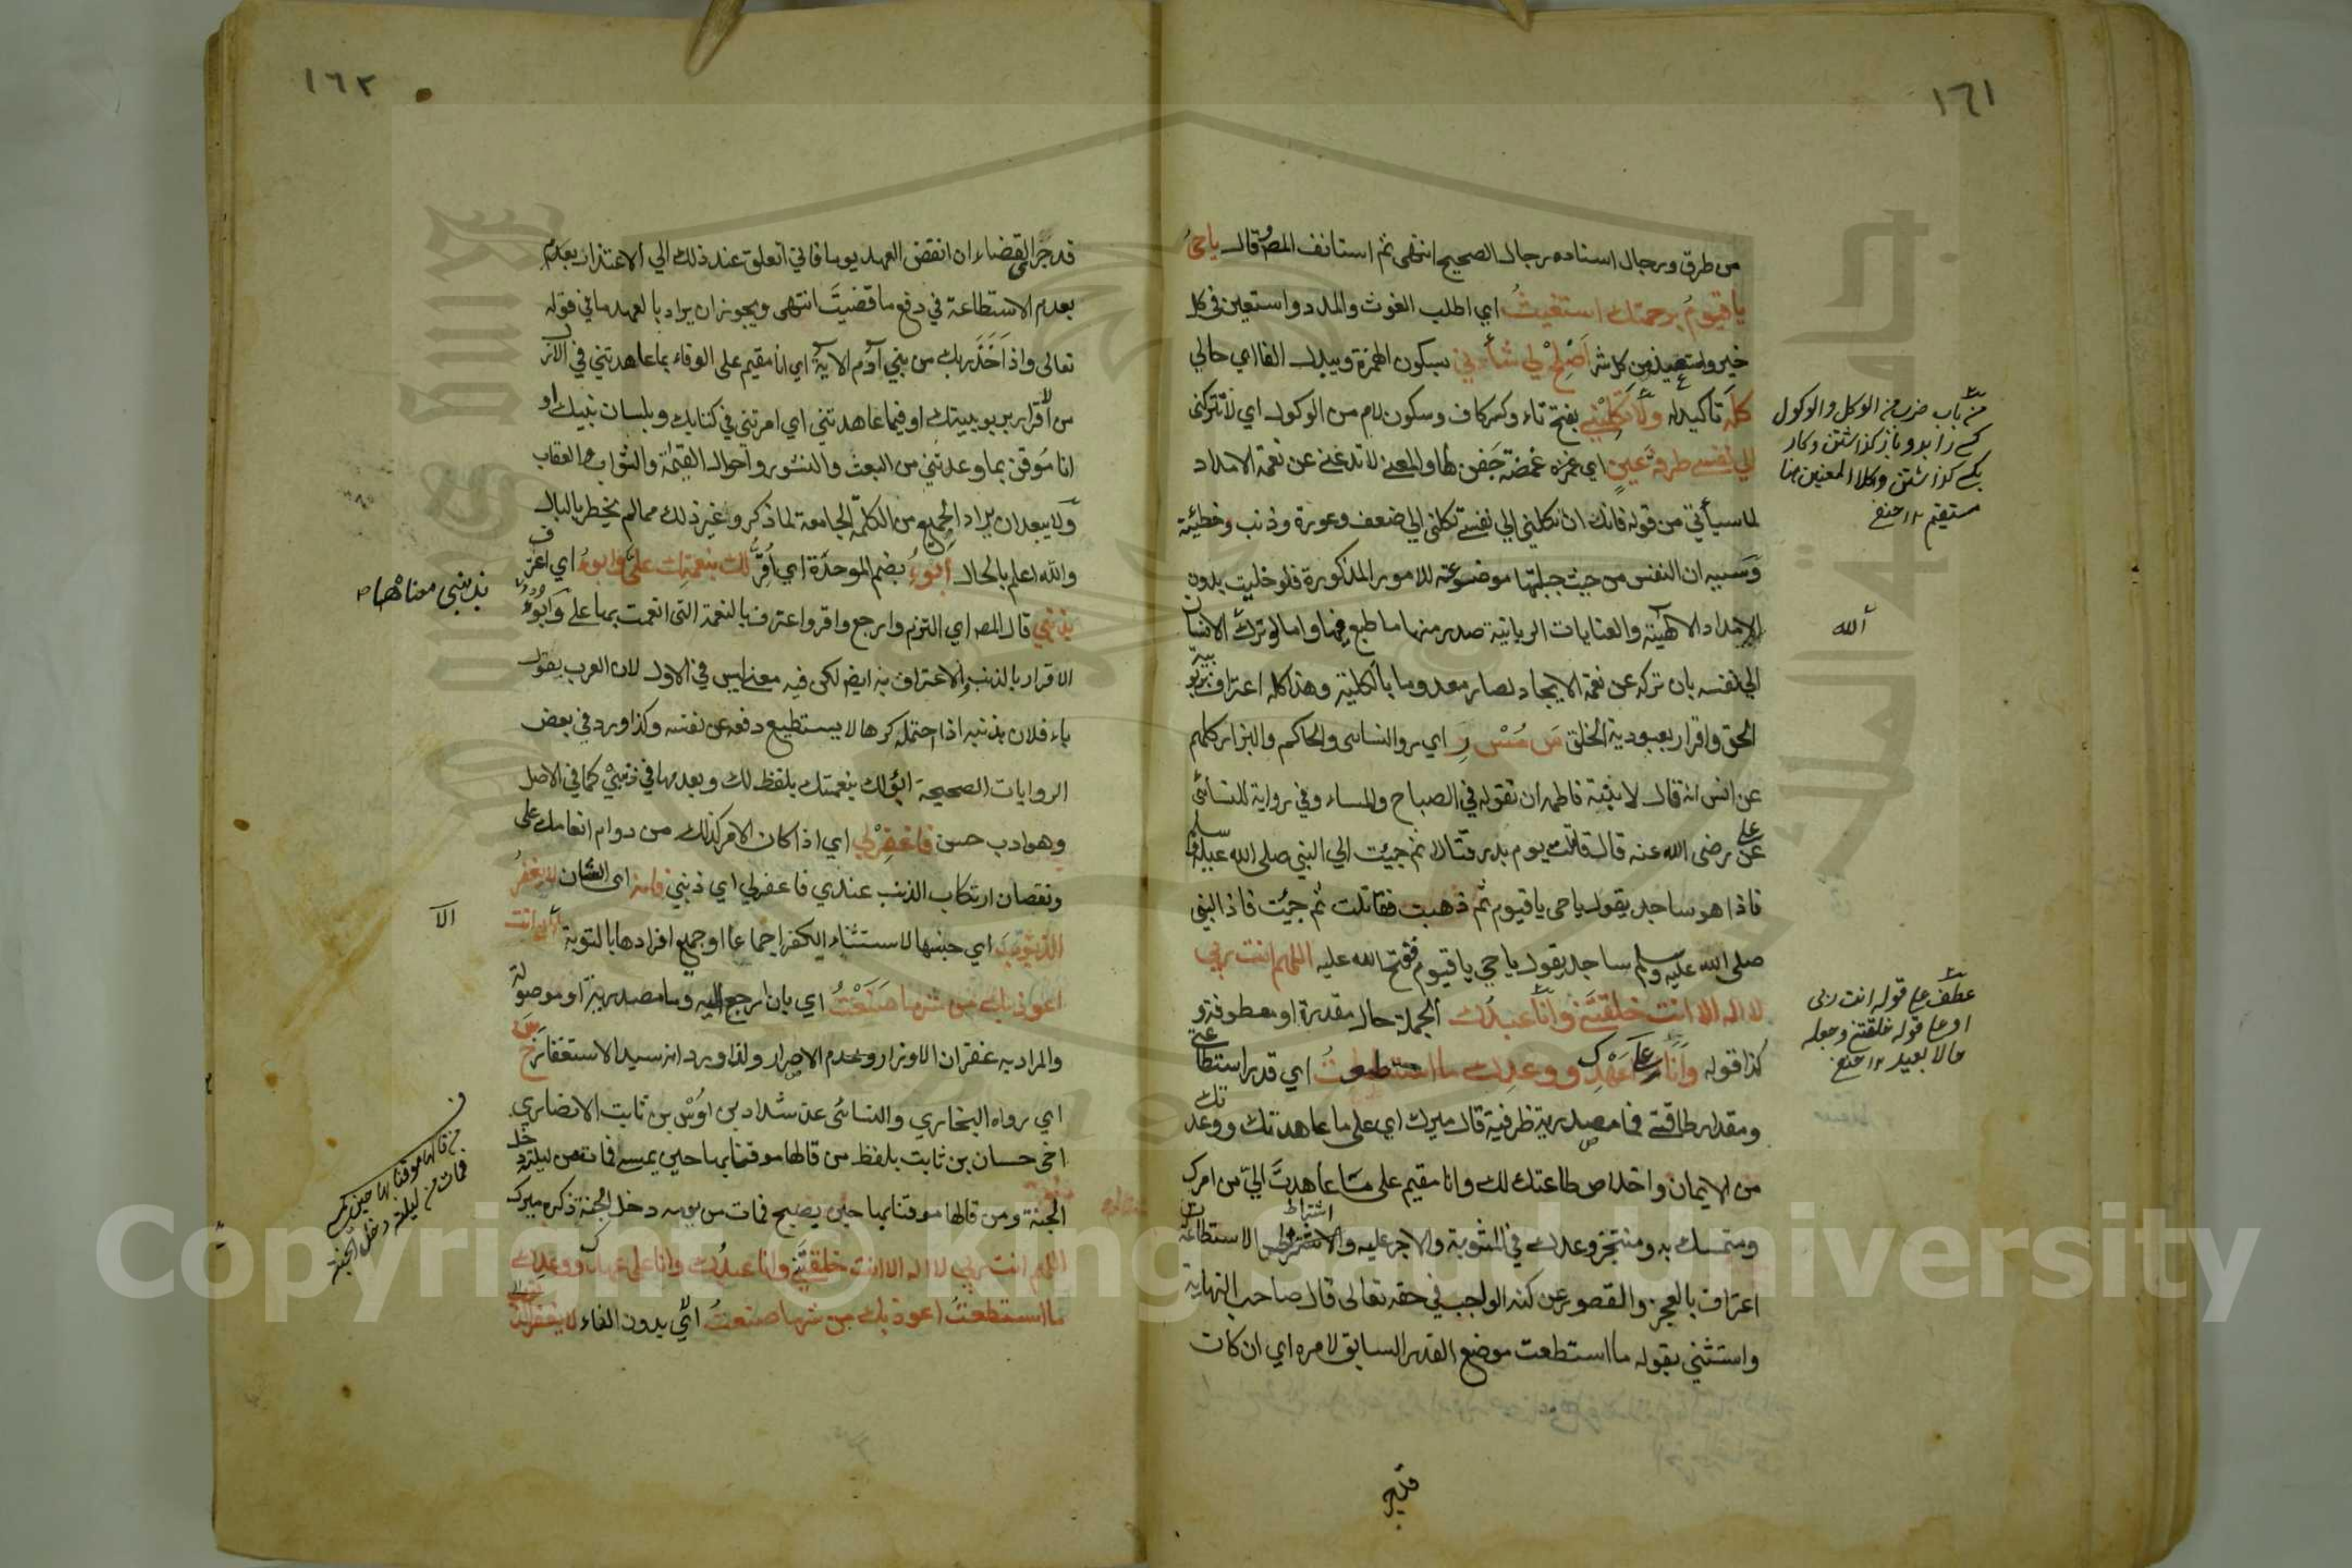 ١٦١
من طرق ورجال اسناده رجال الصحيح انتهى ثم استانف المصر وقال ياحيُّ
ياقيومُ برحمتك استغيثُ اي اطلب الغوث والمدد واستعين في كل
خير واستعيذ من كل شر اَصْلِحْ لي شأني بسكون الهمزة ويبدل الفا اي حالي
كلَّه تاكيد له ولا تَكِلْنِي بفتح تاء وكسر كاف وسكون لام من الوكول اي لا تتركني
الي نفسي طرفةَ عينٍ اي غمزة غمضة جَفن لها والمعنى لا تدعني عن نعمة الامداد
لما سيأتي من قوله فانك ان تكلني الي نفسي تكلني الي ضعف وعورة وذنب وخطيئة
وسببه ان النفس من حيث جبلتها موضوعة للامور المذكورة فلو خليت بدون
الامداد الالهية والعنايات الربانية صدر منها ما طبع فيها واما لو ترك الانسان
الي نفسه بان تركه عن نعمة الايجاد لصار معدوما بالكلية وهذا كله اعتراف بربوبية
الحق واقرار بعبودية الخلق س مس ر اي رواه النسائى والحاكم والبزار كلهم
عن انس انه قال لابنته فاطمه ان تقوله في الصباح والمساء وفي رواية للنسائى
عن علي رضى الله عنه قال قاتلت يوم بدر قتالا ثم جيئت الي النبي صلى الله عليه وسلم
فاذا هو ساجد يقول ياحى ياقيوم ثم ذهبت فقاتلت ثم جيئت فاذا النبي
صلى الله عليه وسلم ساجد يقول ياحي ياقيوم ففتح الله عليه اللهم انت ربي
لا اله الا انت خلقتَني وانا عبدُك الجملة حال مقدرة او معطوفة و
كذا قوله وانا على عَهْدِك ووعدِك ما استطعتُ اي قدر استطاعتي
ومقدار طاقتي فما مصدرية ظرفية قال ميرك اي على ما عاهدتك ووعدتك
من الايمان واخلاص طاعتك لك وانا مقيم على ما عاهدتَ اليّ من امرك
ومتمسك به ومنتجز وعدك في المثوبة والاجر عليه واشتراط الاستطاعة
اعتراف بالعجز والقصور عن كنه الواجب في حقه تعالى قال صاحب النهاية
واستثنى بقوله ما استطعت موضع القدر السابق لامره اي ان كان
من باب ضرب من الوكل والوكول
كسے را بدو باز گذاشتن وكار
بكسے گذاشتن وكلا المعنيين هنا
مستقيم ١٢ حنفي
الله
عطف على قوله انت ربى
او على قوله خلقتني وجعله
حالا بعيد ١٢ حنفي
١٦٢
قد جَرَى القضاء ان انقض العهد يوما فاني اتعلق عند ذلك الي الاعتذار بعدم
بعدم الاستطاعة في دفع ما قضيتَ انتهى ويجوز ان يراد بالعهد ما في قوله
تعالى واذ اَخَذَ ربك من بني آدم الآية اي انا مقيم على الوفاء بما عاهدتني في الازل
من الاقرار بربوبيتك او فيما عاهدتني اي امرتني في كتابك وبلسان نبيك او
انا مُوقن بما وعدتني من البعث والنشور واحوال القيمة والثواب والعقاب
ولا يبعد ان يراد الجميع من الكلمة الجامعة لما ذكر وغير ذلك مما لم يخطر بالبال
والله اعلم بالحال اَبُوءُ بضم الموحدة اي اُقِرُّ لك بنعمتِك عليَّ وابوءُ اي اعترف
بذنبي قال المصر اي التزم وارجع واقر واعترف بالنعمة التى انعمت بها علي وَاَبُوءُ
الاقرار بالذنب والاعتراف به ايضا لكن فيه معنى ليس في الاول لان العرب يقول
باء فلان بذنبه اذا احتمله كرها لا يستطيع دفعه عن نفسه وكذا ورد في بعض
الروايات الصحيحة ابوُلك بنعمتك بلفظ لك وبعدمها في ذنبيْ كما في الاصل
وهو ادب حسن فاغفِرْلي اي اذا كان الامر كذلك من دوام انعامك على
ونقصان ارتكاب الذنب عندي فاغفرلي اي ذنبي فانه اى الشان لا يغفرُ
الذنوبَ اي جنسها لاستثناء الكفر اجماعا او جميع افرادها بالتوبة الا انت
اعوذ بك من شر ما صَنَعْتُ اي بان ارجع اليه وما مصدرية او موصولة
والمراد به غفران الاوزار وعدم الاصرار ولذا ورد انه سيد الاستغفار خ س
اي رواه البخاري والنسائى عن شداد بن اوُسْ بن ثابت الانصاري
اخى حسان بن ثابت بلفظ من قالها موقنا بها حين يمسي فمات من ليلته دخل
الجنة ومن قالها موقنا بها حين يصبح فمات من يومه دخل الجنة ذكره ميرك
اللهم انت ربي لا اله الا انت خلقتَني وانا عبدُك وانا على عهدك ووعدِك
ما استطعتُ اعوذ بك من شر ما صنعتُ ابُوء بدون الفاء لا يغفر الذنوب
بذنبي معناهما
الا
من قالها موقنا بها حين يمسي
فمات من ليلته دخل الجنة
Copyright © King Saud University